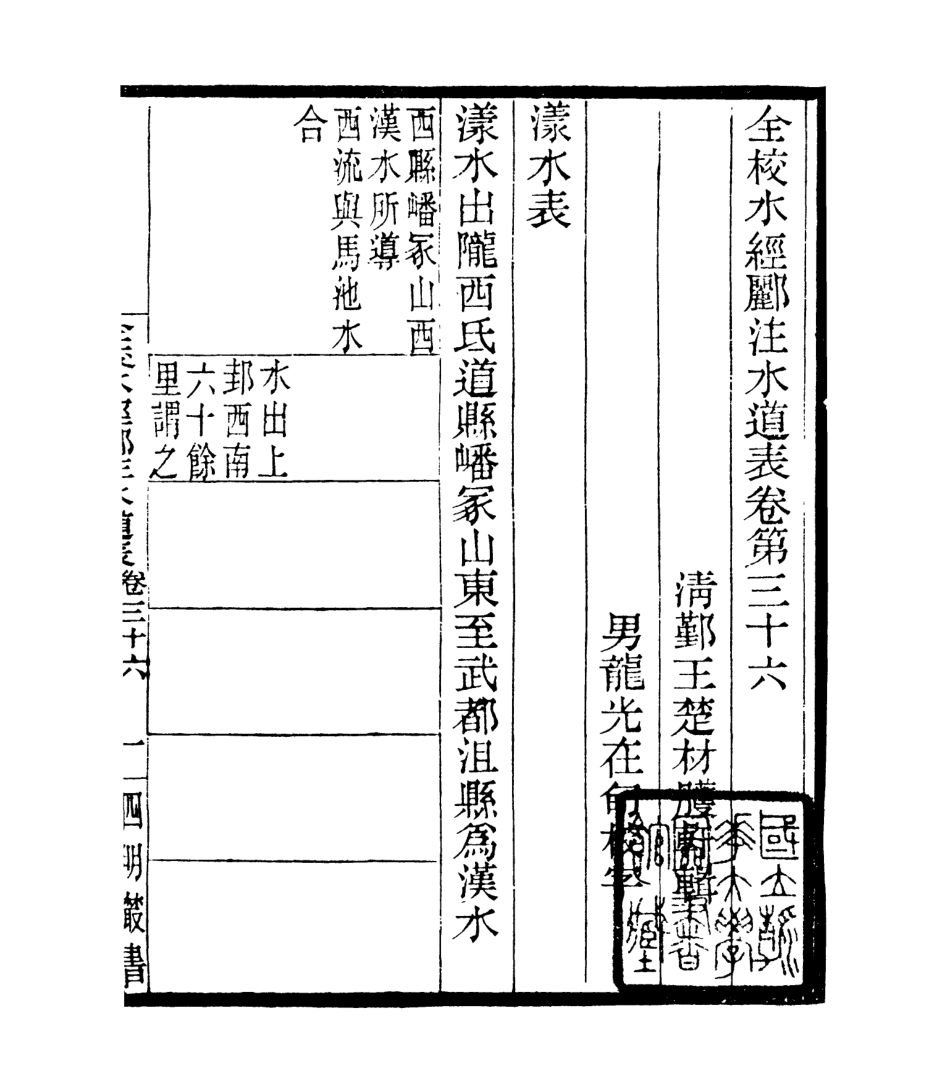 全校水經酈注水道表卷第三十六
清鄞王楚材
男龍光在
漾水表
漾水出隴西氐道縣嶓冢山東至武都沮縣爲漢水
西縣嶓冢山西
漢水所導
西流與馬池水
合
水出上
邽西南
六十餘
里謂之
卷三十六
四明叢書
國立
大學